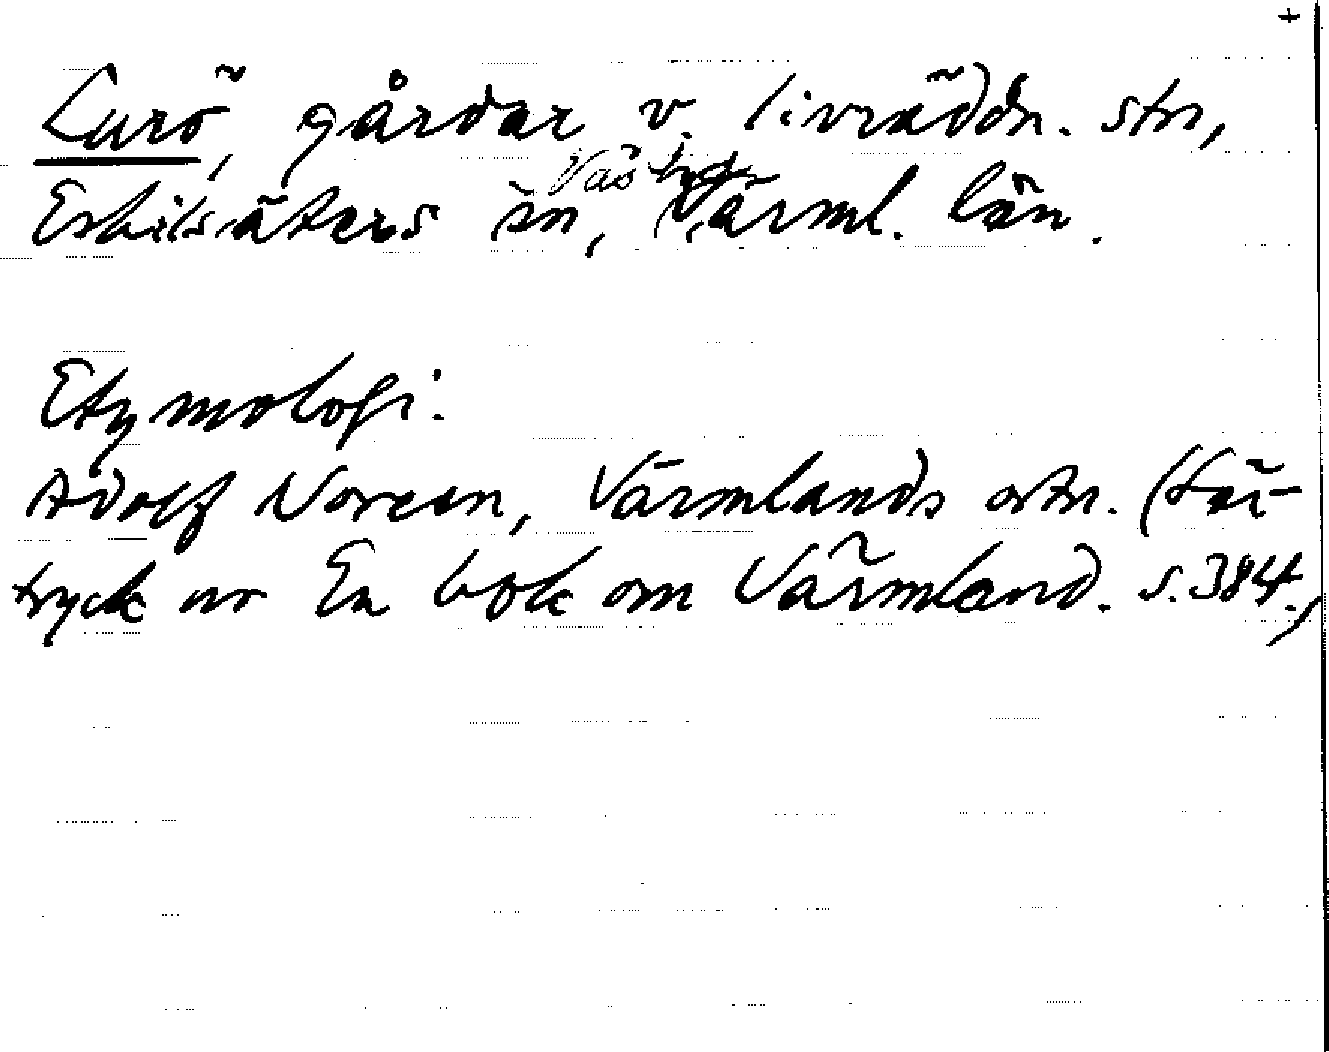 +
Lurö, gårdar v. livräddn. stn,
Eskilsäters sn, Värml. län.
Etymologi:
Adolf Noreen, Värmlands ortn. (Sär-
tryck ur En bok om Värmland. s. 384.)